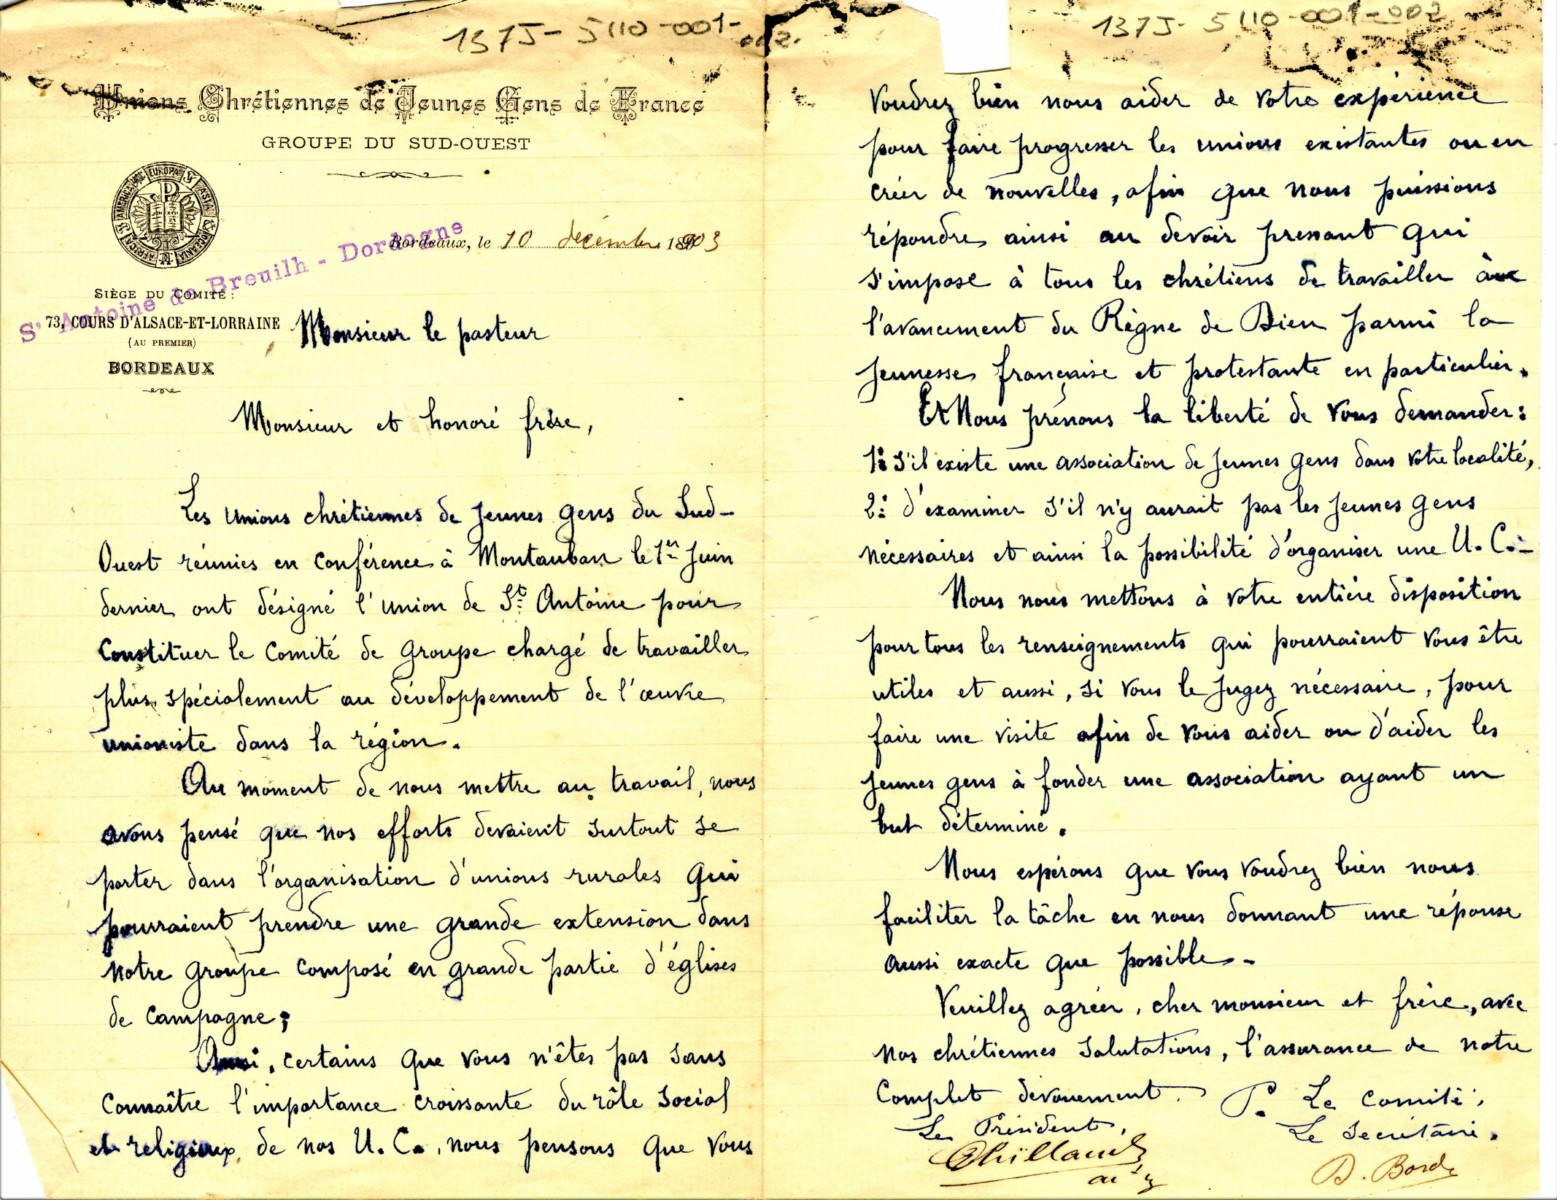 137J-5110-001-002.
Unions Chrétiennes de Jeunes Gens de France
GROUPE DU SUD-OUEST
Bordeaux, le 10 décembre 1903
St Antoine de Breuilh - Dordogne
SIÈGE DU COMITÉ :
73, COURS D'ALSACE-ET-LORRAINE
(AU PREMIER)
BORDEAUX
Monsieur le pasteur
Monsieur et honoré frère,
Les Unions chrétiennes de jeunes gens du Sud-
Ouest réunies en conférence à Montauban le 1er Juin
dernier ont désigné l'union de St Antoine pour
constituer le Comité de groupe chargé de travailler
plus spécialement au développement de l'œuvre
unioniste dans la région.
Au moment de nous mettre au travail, nous
avons pensé que nos efforts devaient surtout se
porter dans l'organisation d'unions rurales qui
pourraient prendre une grande extension dans
notre groupe composé en grande partie d'églises
de campagne;
Aussi, certains que vous n'êtes pas sans
connaître l'importance croissante du rôle social
et religieux, de nos U. C., nous pensons que vous
137J-5110-001-002
voudrez bien nous aider de votre expérience
pour faire progresser les unions existantes ou en
créer de nouvelles, afin que nous puissions
répondre ainsi au devoir pressant qui
s'impose à tous les chrétiens de travailler à
l'avancement du Règne de Dieu parmi la
jeunesse française et protestante en particulier.
Et Nous prenons la liberté de vous demander:
1: S'il existe une association de jeunes gens dans votre localité,
2: d'examiner s'il n'y aurait pas les jeunes gens
nécessaires et ainsi la possibilité d'organiser une U. C.-
Nous nous mettons à votre entière disposition
pour tous les renseignements qui pourraient vous être
utiles et aussi, si vous le jugez nécessaire, pour
faire une visite afin de vous aider ou d'aider les
jeunes gens à fonder une association ayant un
but déterminé.
Nous espérons que vous voudrez bien nous
faciliter la tâche en nous donnant une réponse
aussi exacte que possible.-
Veuillez agréer, cher monsieur et frère, avec
nos chrétiennes salutations, l'assurance de notre
complet dévouement. P. Le Comité:
Le Président, Le Secrétaire.
D. Borde